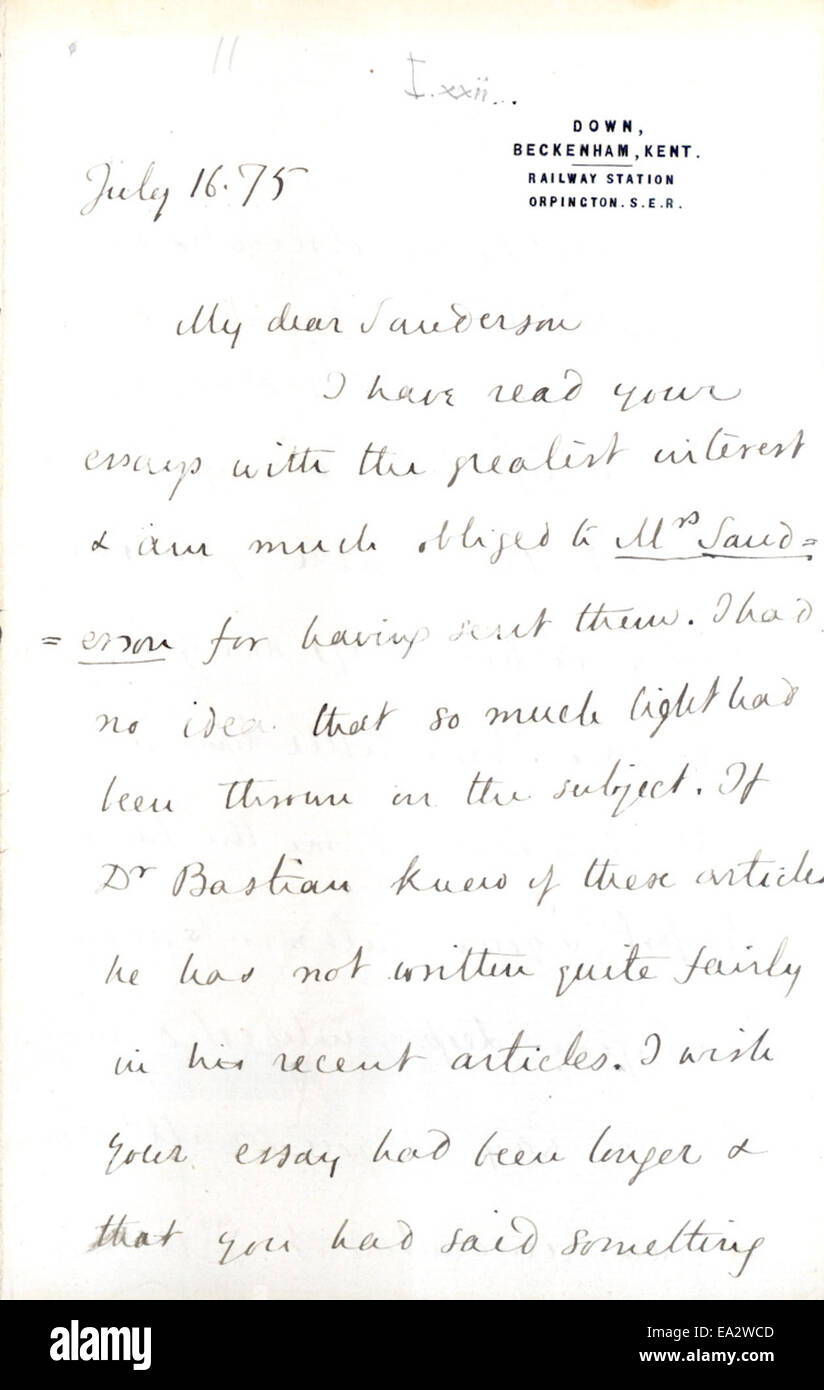 11
I.xxii...
DOWN,
BECKENHAM, KENT.
RAILWAY STATION
ORPINGTON. S.E.R.
July 16. 75
My dear Sanderson
I have read your
essays with the greatest interest
& am much obliged to Mrs Sand=
=erson for having sent them. I had
no idea that so much light had
been thrown on the subject. If
Dr Bastian knew of these articles
he has not written quite fairly
in his recent articles. I wish
your essay had been longer &
that you had said something
alamy
Image ID: EA2WCD
www.alamy.com